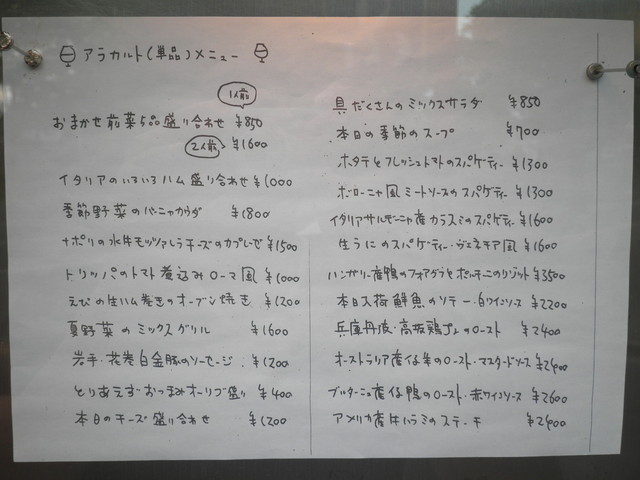 アラカルト(単品)メニュー
1人前
おまかせ前菜5品盛り合わせ ¥850
2人前 ¥1600
イタリアのいろいろハム盛り合わせ ¥1000
季節野菜のバーニャカウダ ¥1800
ナポリの水牛モッツァレラチーズのカプレーゼ ¥1500
トリッパのトマト煮込みローマ風 ¥1000
えびの生ハム巻きのオーブン焼き ¥1200
夏野菜のミックスグリル ¥1600
岩手・花巻白金豚のソーセージ ¥1200
とりあえずおつまみオリーブ盛り ¥400
本日のチーズ盛り合わせ ¥1200
具だくさんのミックスサラダ ¥850
本日の季節のスープ ¥700
ホタテとフレッシュトマトのスパゲティー ¥1300
ボローニャ風ミートソースのスパゲティー ¥1300
イタリアサルデーニャ産カラスミのスパゲティー ¥1600
生うにのスパゲティー・ヴェネチア風 ¥1600
ハンガリー産鴨のフォアグラとポルチーニのリゾット ¥3500
本日入荷鮮魚のソテー・白ワインソース ¥2200
兵庫丹波・高坂鶏ももロースト ¥2400
オーストラリア産仔羊のロースト・マスタードソース ¥2400
ブルターニュ産仔鴨のロースト・赤ワインソース ¥2600
アメリカ産牛ハラミのステーキ ¥2400